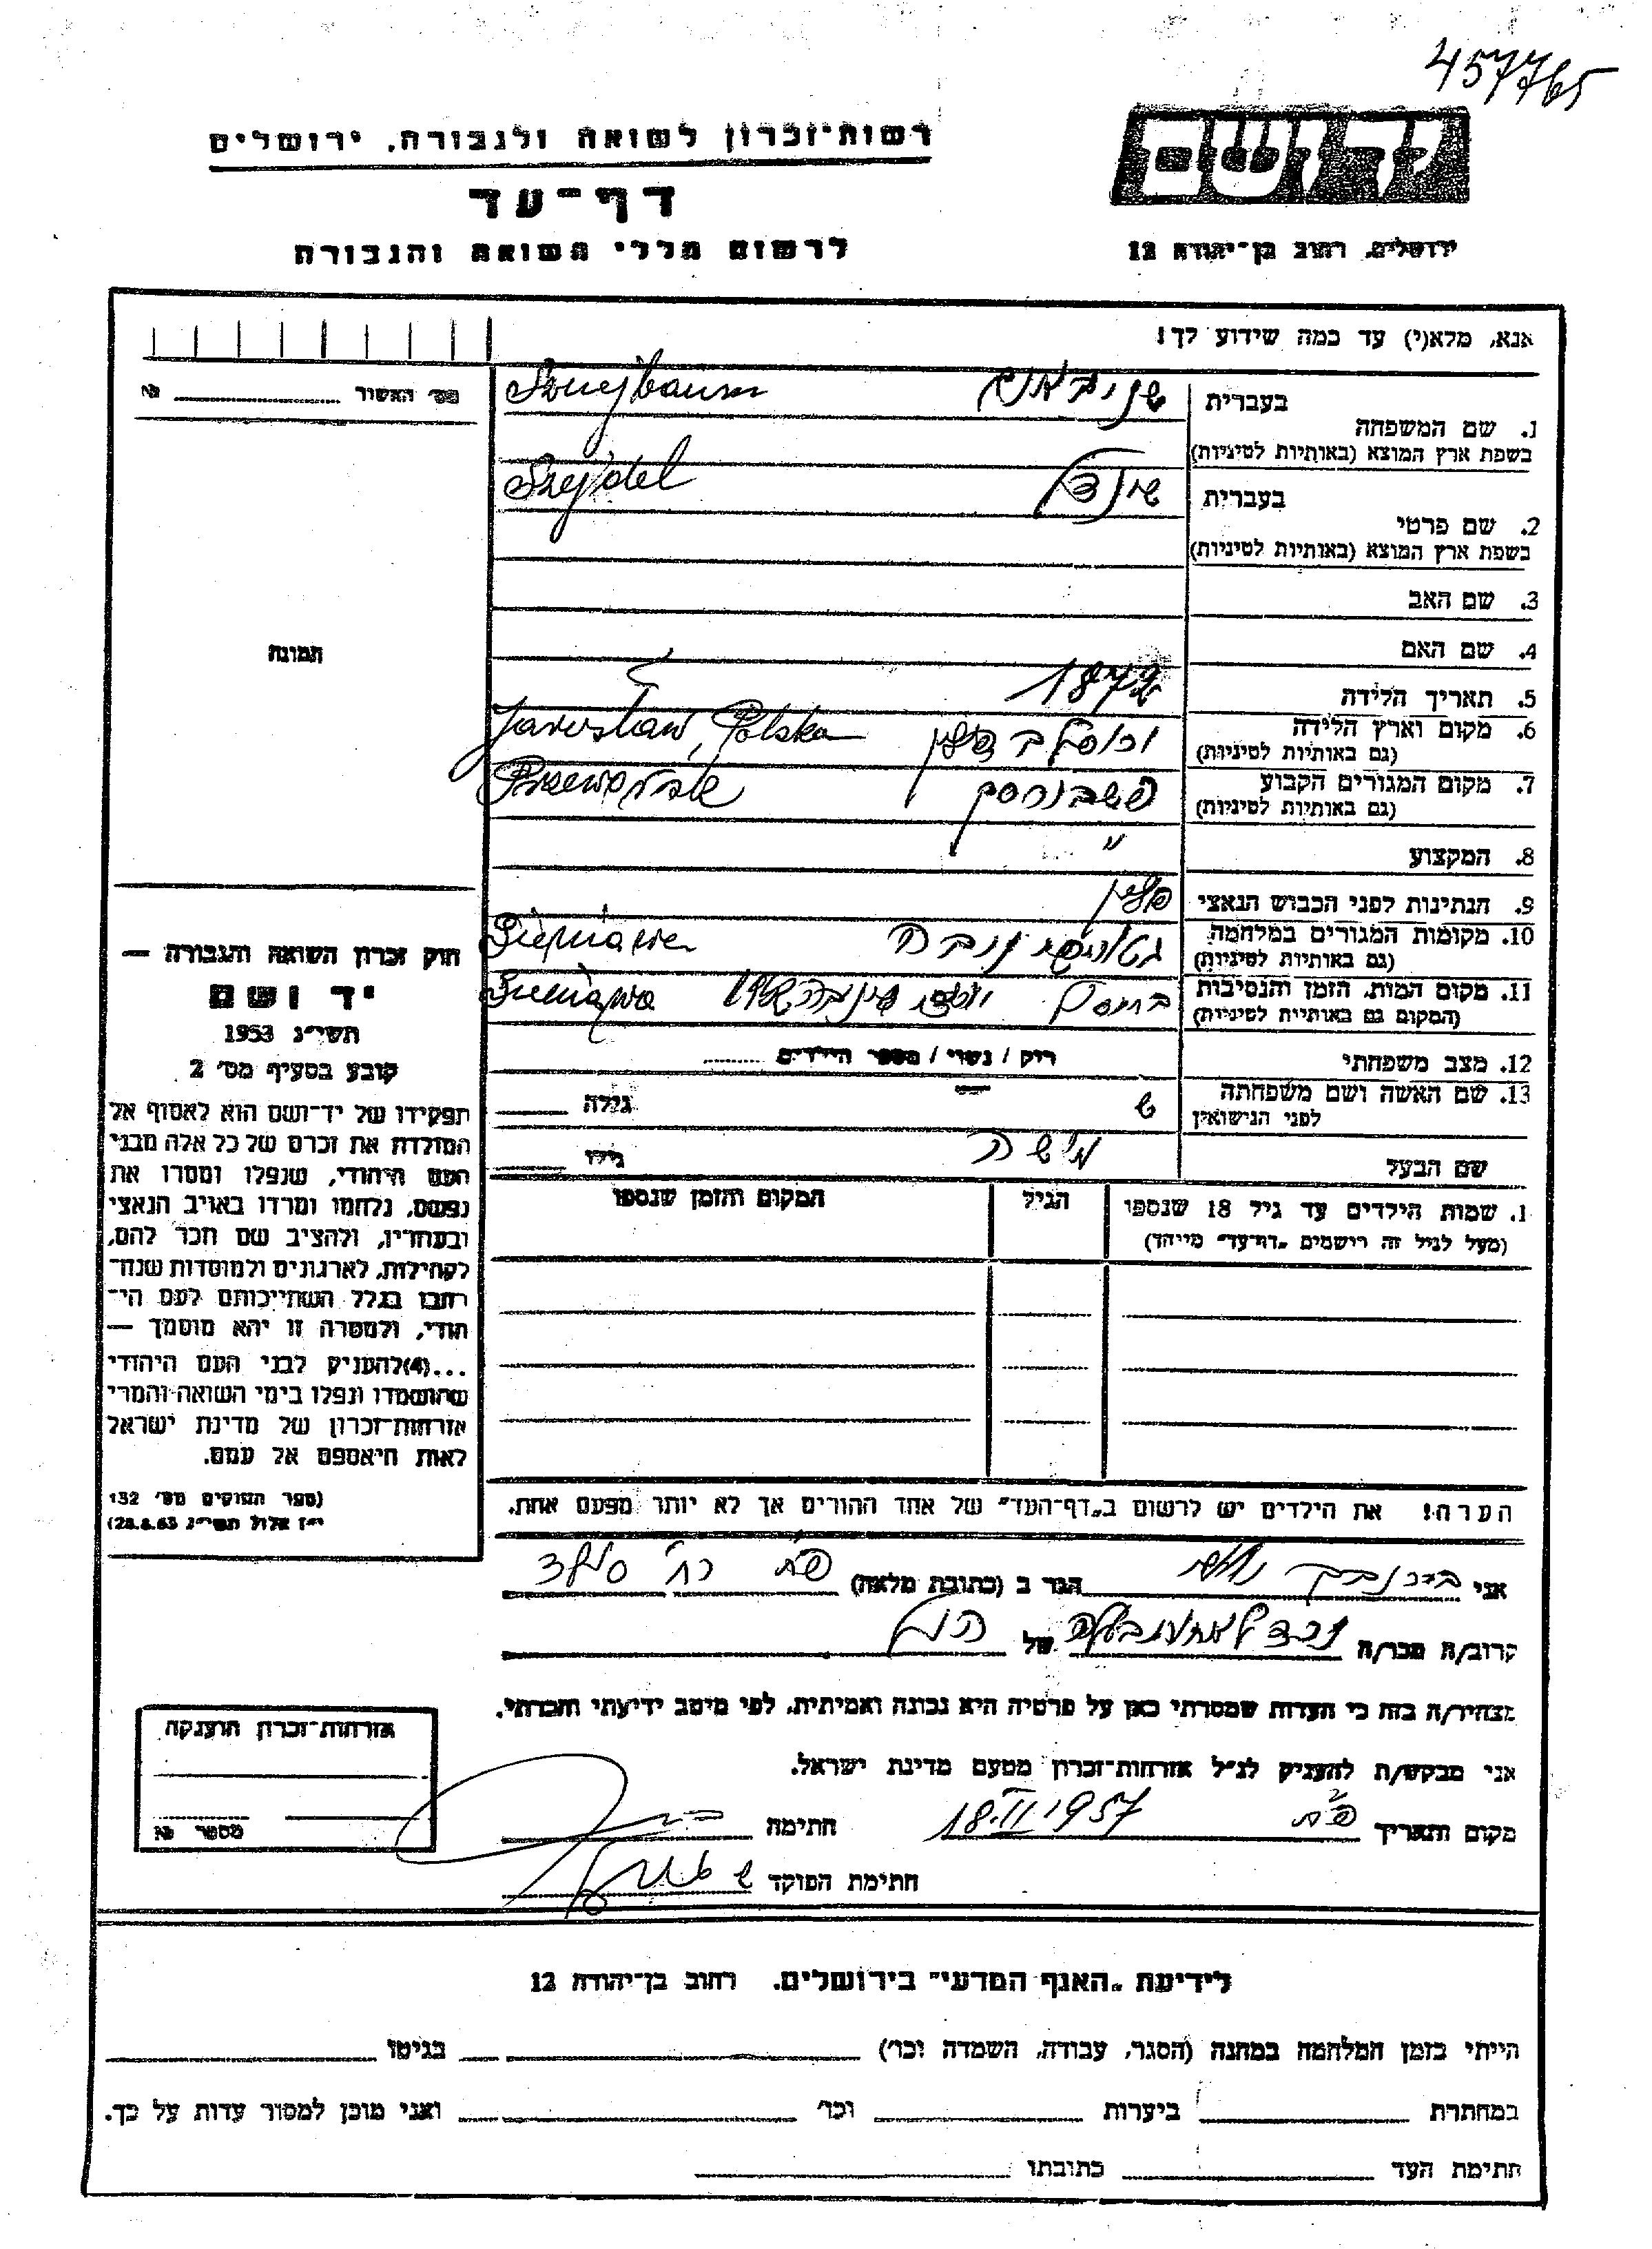 457765
רשות־זכרון לשואה ולגבורה, ירושלים
יד ושם
דף־עד
לרשום חללי השואה והגבורה
ירושלים, רחוב בן־יהודה 12
אנא, מלא(י) עד כמה שידוע לך!
מס׳ האשור № 
1. שם המשפחה
בעברית
Sznejbaum
בשפת ארץ המוצא (באותיות לטיניות)
2. שם פרטי
בעברית שינדל
Szejndel
בשפת ארץ המוצא (באותיות לטיניות)
3. שם האב
4. שם האם
תמונה
5. תאריך הלידה 1872
6. מקום וארץ הלידה
(גם באותיות לטיניות)
Jarosław, Polska
7. מקום המגורים הקבוע
(גם באותיות לטיניות)
8. המקצוע "
9. הנתינות לפני הכבוש הנאצי פולין
10. מקומות המגורים במלחמה
(גם באותיות לטיניות)
Sieniawa
11. מקום המות, הזמן והנסיבות
(המקום גם באותיות לטיניות)
Sieniawa
12. מצב משפחתי רוק / נשוי / מספר הילדים
13. שם האשה ושם משפחתה
לפני הנישואין
גילה
שם הבעל משה גילו
1. שמות הילדים עד גיל 18 שנספו
(מעל לגיל זה רישמים „דף־עד” מייחד)
הגיל
המקום והזמן שנספו
חוק זכרון השואה והגבורה —
יד ושם
תשי״ג 1953
קובע בסעיף מס׳ 2
תפקידו של יד־ושם הוא לאסוף אל
המולדת את זכרם של כל אלה מבני
העם היהודי, שנפלו ומסרו את
נפשם, נלחמו ומרדו באויב הנאצי
ובעוזריו, ולהציב שם וזכר להם,
לקהילות, לארגונים ולמוסדות שנח־
רבו בגלל השתייכותם לעם הי־
הודי, ולמטרה זו יהא מוסמך —
...(4)להעניק לבני העם היהודי
שהושמדו ונפלו בימי השואה והמרי
אזרחות־זכרון של מדינת ישראל
לאות היאספם אל עמם.
(ספר החוקים מס׳ 132
י״ז אלול תשי״ג 28.8.53)
הערה! את הילדים יש לרשום ב„דף־העד” של אחד ההורים אך לא יותר מפעם אחת.
אני הגר ב (כתובת מלאה) פ״ת רח׳
קרוב/ה מכר/ה של
מצהיר/ה בזה כי העדות שמסרתי כאן על פרטיה היא נכונה ואמיתית, לפי מיטב ידיעתי והכרתי.
אני מבקש/ת להעניק לנ״ל אזרחות־זכרון מטעם מדינת ישראל.
מקום ותאריך פ״ת 18.II.1957 חתימה
חתימת הפוקד
אזרחות־זכרון הוענקה
מספר №
לידיעת „האגף המדעי” בירושלים, רחוב בן־יהודה 12
הייתי בזמן המלחמה במחנה (הסגר, עבודה, השמדה וכו׳) בגיטו
במחתרת ביערות וכו׳ ואני מוכן למסור עדות על כך.
חתימת העד כתובתו